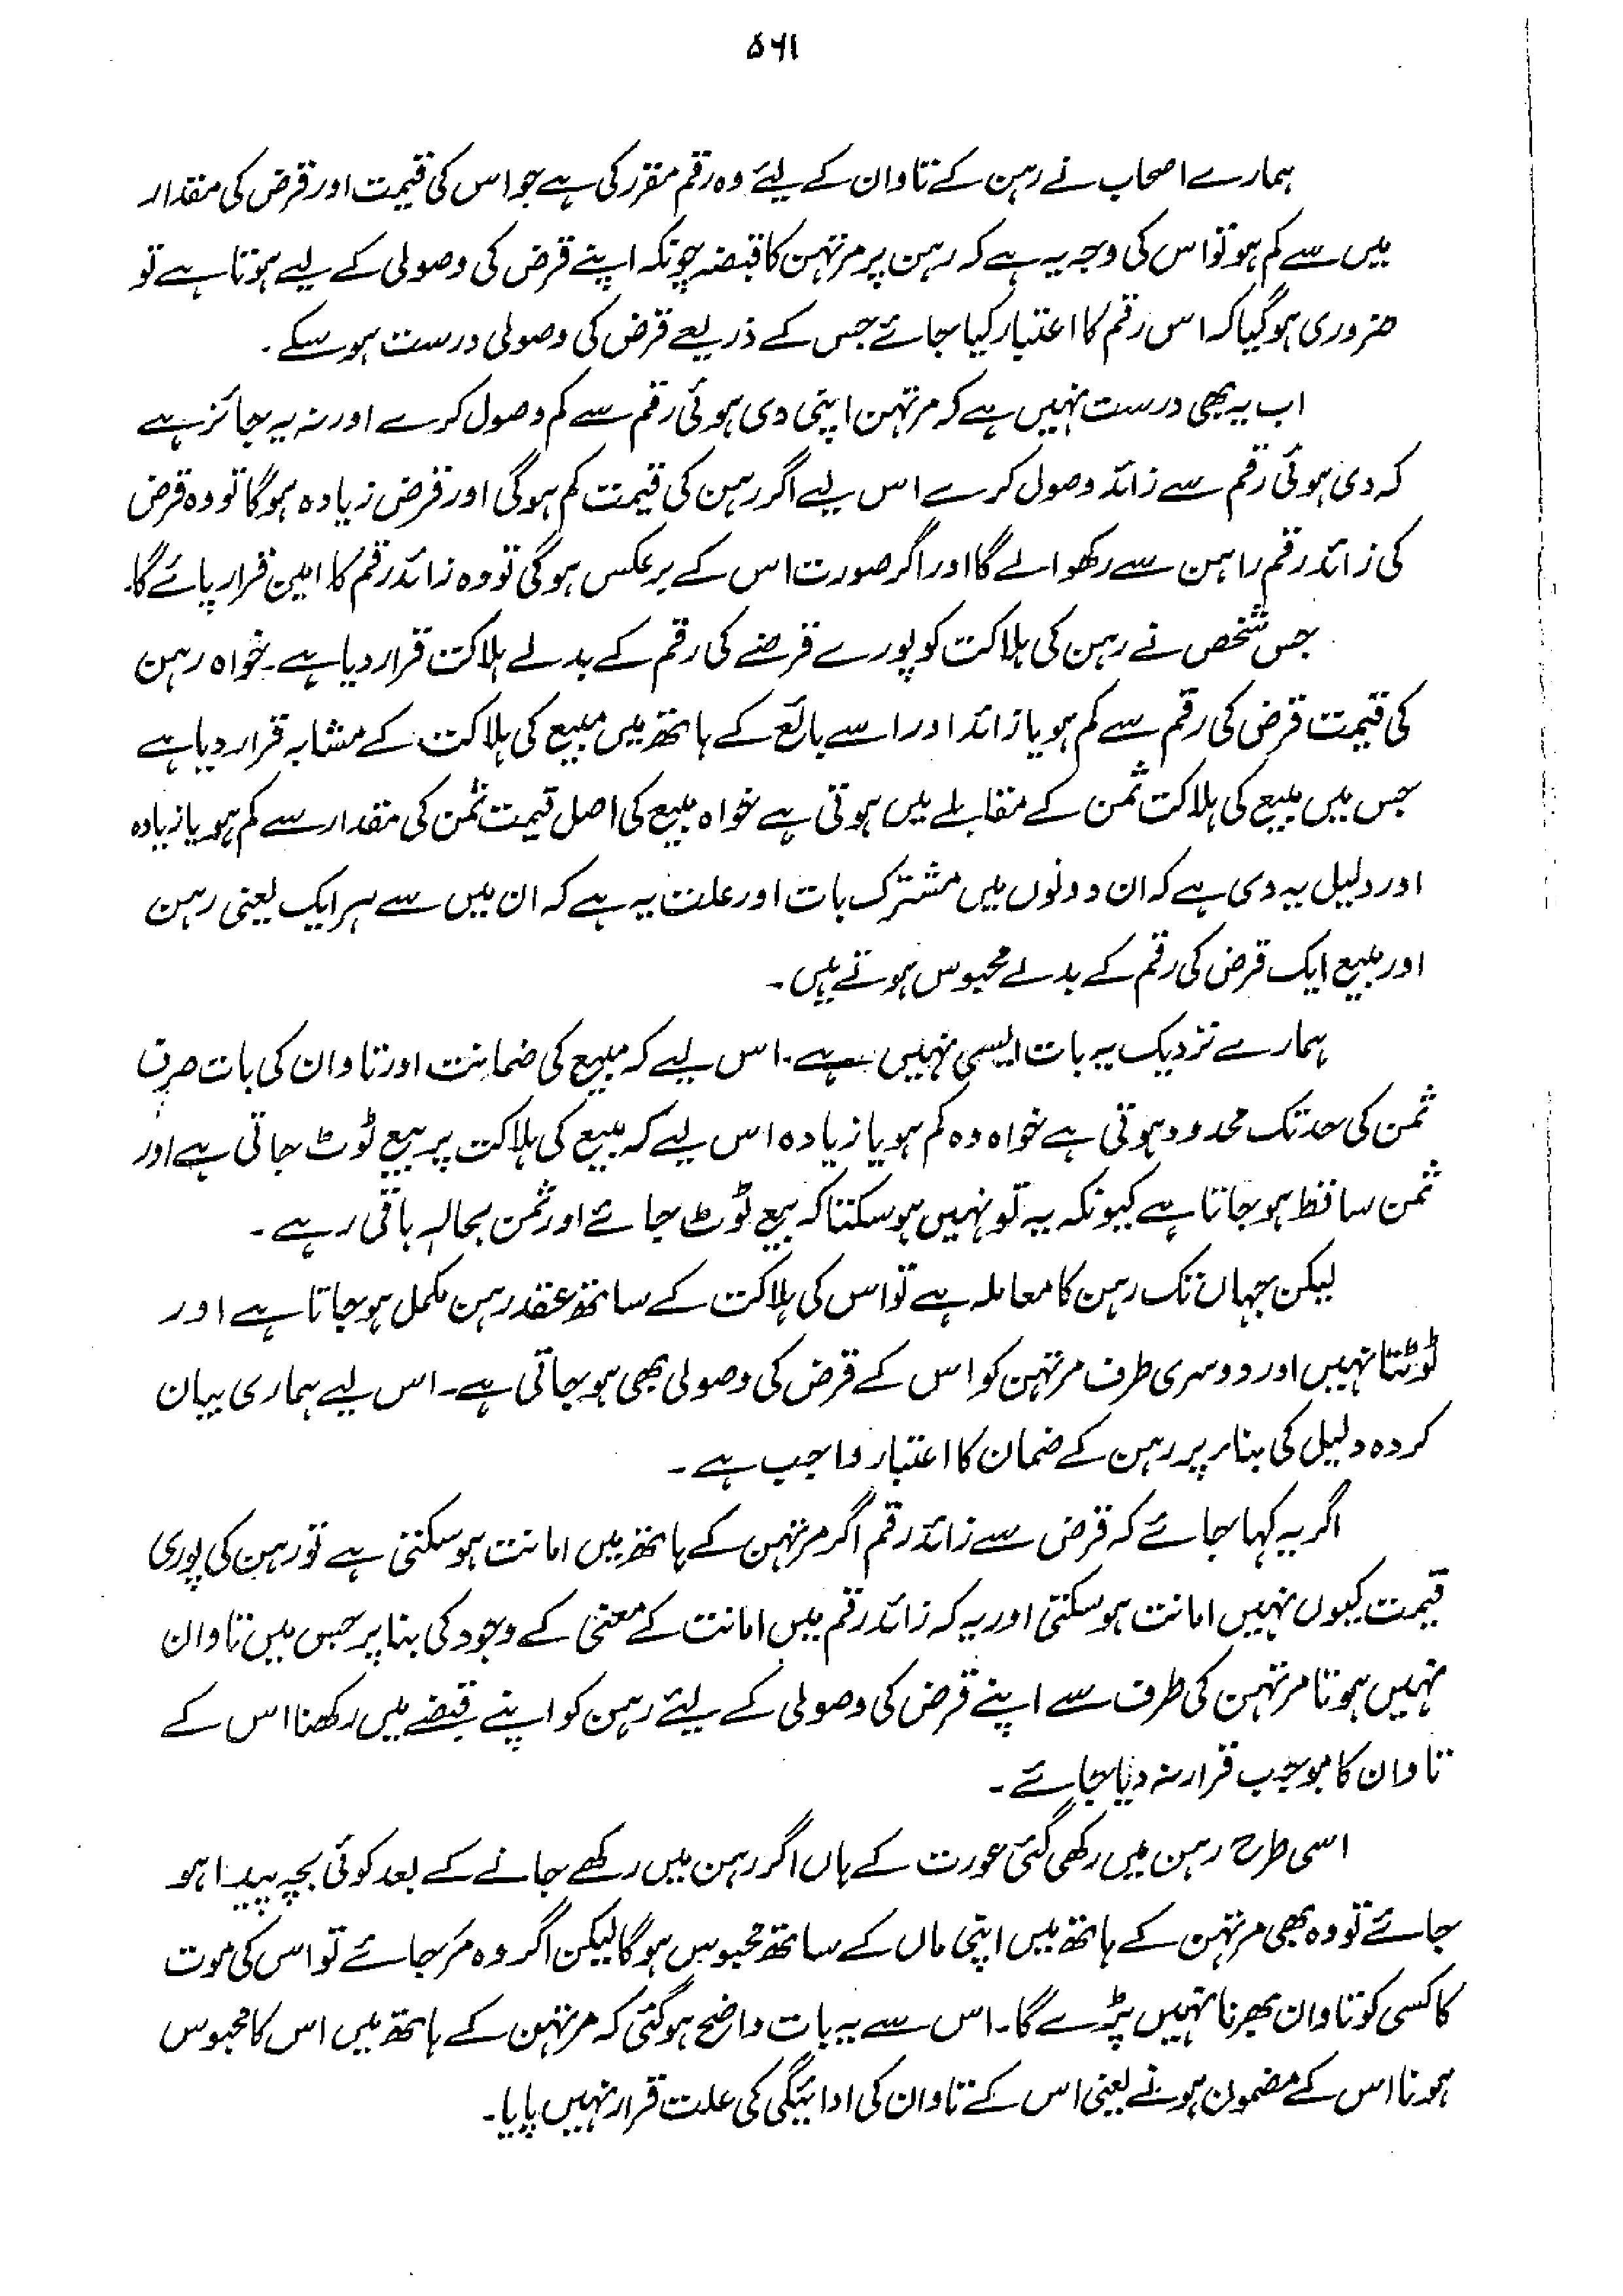 ۵۶۱
ہمارے اصحاب نے رہن کے تاوان کے لیئے وہ رقم مقرر کی ہے جو اس کی قیمت اور قرض کی مقدار
میں سے کم ہو تو اس کی وجہ یہ ہے کہ رہن پر مرتہن کا قبضہ چونکہ اپنے قرض کی وصولی کے لیے ہوتا ہے تو
ضروری ہو گیا کہ اس رقم کا اعتبار کیا جائے جس کے ذریعے قرض کی وصولی درست ہو سکے۔
اب یہ بھی درست نہیں ہے کہ مرتہن اپنی دی ہوئی رقم سے کم وصول کرے اور نہ یہ جائز ہے
کہ دی ہوئی رقم سے زائد وصول کرے اس لیے اگر رہن کی قیمت کم ہوگی اور قرض زیادہ ہوگا تو وہ قرض
کی زائد رقم راہن سے رکھوا لے گا اور اگر صورت اس کے برعکس ہوگی تو وہ زائد رقم کا امین قرار پائے گا۔
جس شخص نے رہن کی ہلاکت کو پورے قرضے کی رقم کے بدلے ہلاکت قرار دیا ہے۔ خواہ رہن
کی قیمت قرض کی رقم سے کم ہو یا زائد اور اسے بائع کے ہاتھ میں مبیع کی ہلاکت کے مشابہ قرار دیا ہے
جس میں مبیع کی ہلاکت ثمن کے مقابلے میں ہوتی ہے خواہ مبیع کی اصل قیمت ثمن کی مقدار سے کم ہو یا زیادہ
اور دلیل یہ دی ہے کہ ان دونوں میں مشترک بات اور علت یہ ہے کہ ان میں سے ہر ایک یعنی رہن
اور مبیع ایک قرض کی رقم کے بدلے محبوس ہوتے ہیں۔
ہمارے نزدیک یہ بات ایسی نہیں ہے۔ اس لیے کہ مبیع کی ضمانت اور تاوان کی بات صرف
ثمن کی حد تک محدود ہوتی ہے خواہ وہ کم ہو یا زیادہ اس لیے کہ مبیع کی ہلاکت پر بیع ٹوٹ جاتی ہے اور
ثمن ساقط ہو جاتا ہے کیونکہ یہ تو نہیں ہو سکتا کہ بیع ٹوٹ جائے اور ثمن بحالہ باقی رہے۔
لیکن جہاں تک رہن کا معاملہ ہے تو اس کی ہلاکت کے ساتھ عقد رہن مکمل ہو جاتا ہے اور
ٹوٹتا نہیں اور دوسری طرف مرتہن کو اس کے قرض کی وصولی بھی ہو جاتی ہے۔ اس لیے ہماری بیان
کردہ دلیل کی بناء پر رہن کے ضمان کا اعتبار واجب ہے۔
اگر یہ کہا جائے کہ قرض سے زائد رقم اگر مرتہن کے ہاتھ میں امانت ہو سکتی ہے تو رہن کی پوری
قیمت کیوں نہیں امانت ہو سکتی اور یہ کہ زائد رقم میں امانت کے معنی کے وجود کی بنا پر جس میں تاوان
نہیں ہوتا مرتہن کی طرف سے اپنے قرض کی وصولی کے لیئے رہن کو اپنے قبضے میں رکھنا اس کے
تاوان کا موجب قرار نہ دیا جائے۔
اسی طرح رہن میں رکھی گئی عورت کے ہاں اگر رہن میں رکھے جانے کے بعد کوئی بچہ پیدا ہو
جائے تو وہ بھی مرتہن کے ہاتھ میں اپنی ماں کے ساتھ محبوس ہوگا لیکن اگر وہ مر جائے تو اس کی موت
کا کسی کو تاوان بھرنا نہیں پڑے گا۔ اس سے یہ بات واضح ہو گئی کہ مرتہن کے ہاتھ میں اس کا محبوس
ہونا اس کے مضمون ہونے یعنی اس کے تاوان کی ادائیگی کی علت قرار نہیں پایا۔